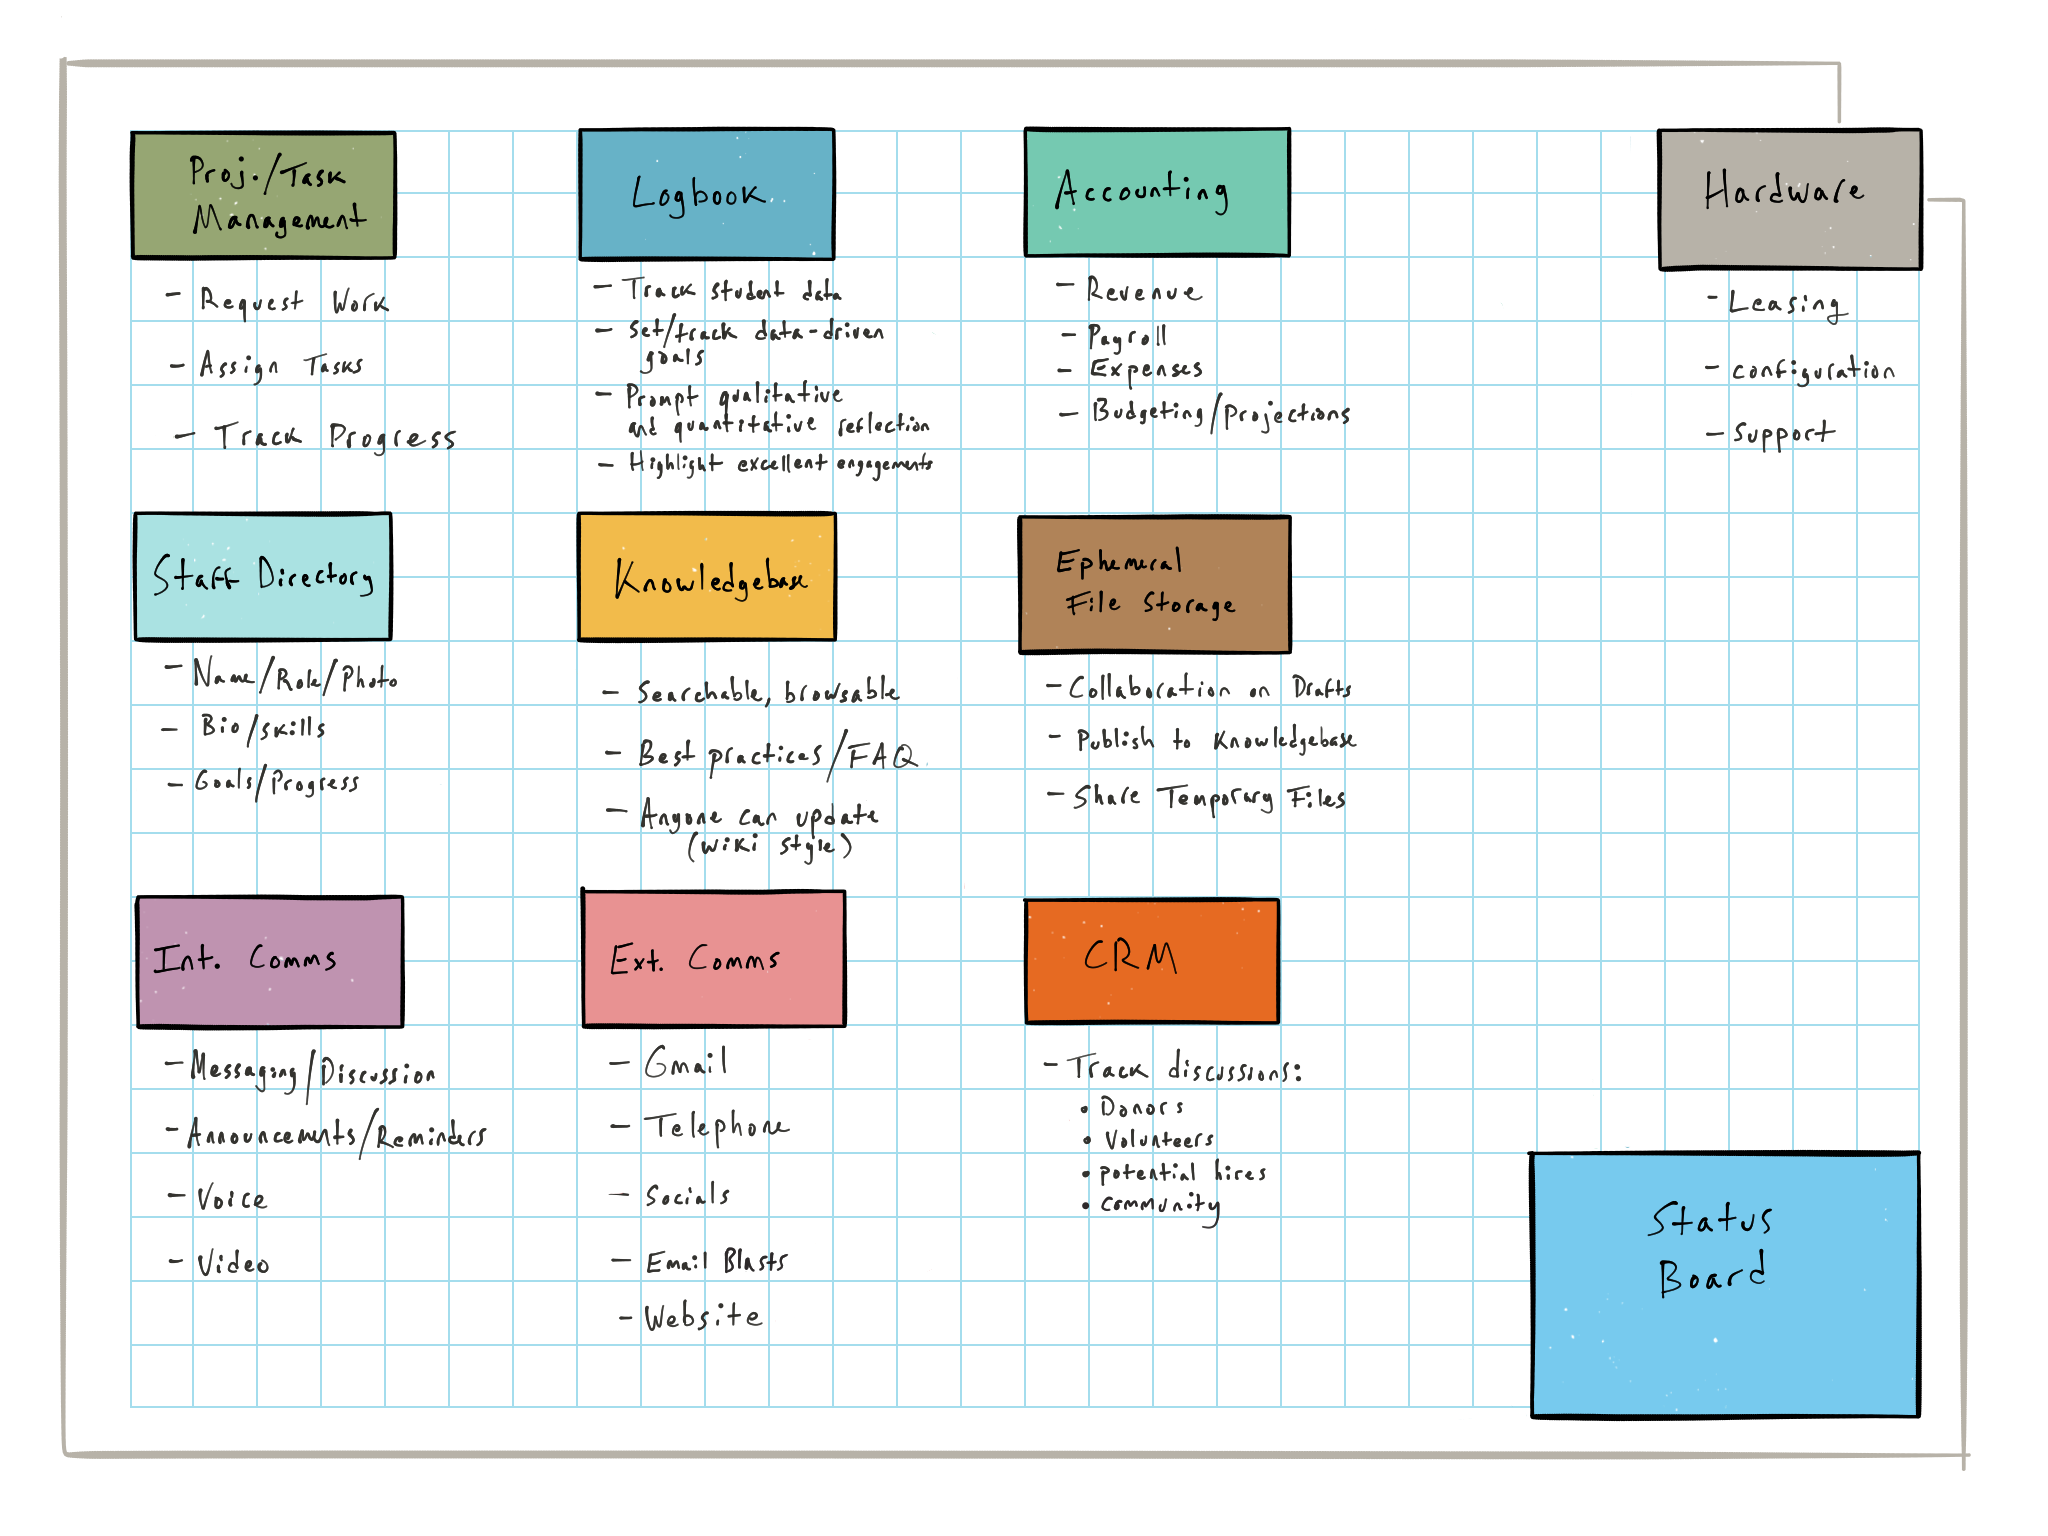 Proj./Task
Management
- Request Work
- Assign Tasks
- Track Progress
Logbook
- Track student data
- Set/track data-driven
goals
- Prompt qualitative
and quantitative reflection
- Highlight excellent engagements
Accounting
- Revenue
- Payroll
- Expenses
- Budgeting/Projections
Hardware
- Leasing
- configuration
- Support
Staff Directory
- Name/Role/Photo
- Bio/skills
- Goals/Progress
Knowledgebase
- Searchable, browsable
- Best practices/FAQ
- Anyone can update
(wiki style)
Ephemeral
File Storage
- Collaboration on Drafts
- Publish to Knowledgebase
- Share Temporary Files
Int. Comms
- Messaging/Discussion
- Announcements/Reminders
- Voice
- Video
Ext. Comms
- Gmail
- Telephone
- Socials
- Email Blasts
- Website
CRM
- Track discussions:
• Donors
• Volunteers
• potential hires
• community
Status
Board